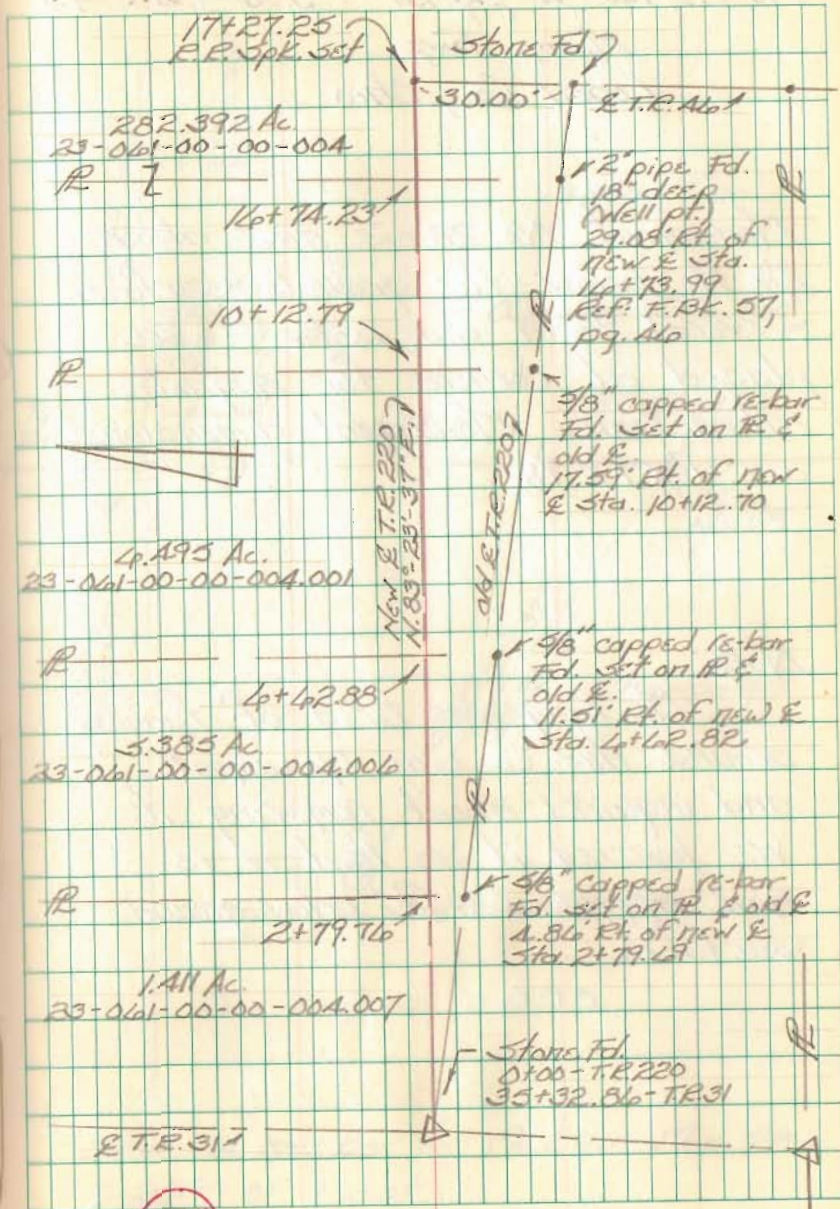 17+27.25
R.R. Spk. Set
Stone Fd.
30.00'
℄ T.R. 46
282.392 Ac.
23-061-00-00-004
PL
16+74.23
2" pipe Fd.
18" deep
(Well pt.)
29.08' Rt. of
new ℄ Sta.
16+73.99
Ref: F.BK. 57,
pg. 46
PL
PL
10+12.79
PL
5/8" capped re-bar
Fd. set on PL &
old ℄
17.59' Rt. of new
℄ Sta. 10+12.70
New ℄ T.R. 220
N.83°-23'-37"E.
old ℄ T.R. 220
6.495 Ac.
23-061-00-00-004.001
PL
6+62.88
5/8" capped re-bar
Fd. set on PL &
old ℄.
11.51' Rt. of new ℄
Sta. 6+62.82
5.385 Ac.
23-061-00-00-004.006
PL
PL
2+79.76
5/8" capped re-bar
Fd. set on PL & old ℄
4.86' Rt. of new ℄
Sta. 2+79.69
1.411 Ac.
23-061-00-00-004.007
PL
Stone Fd.
0+00-T.R. 220
35+32.86-T.R. 31
℄ T.R. 31